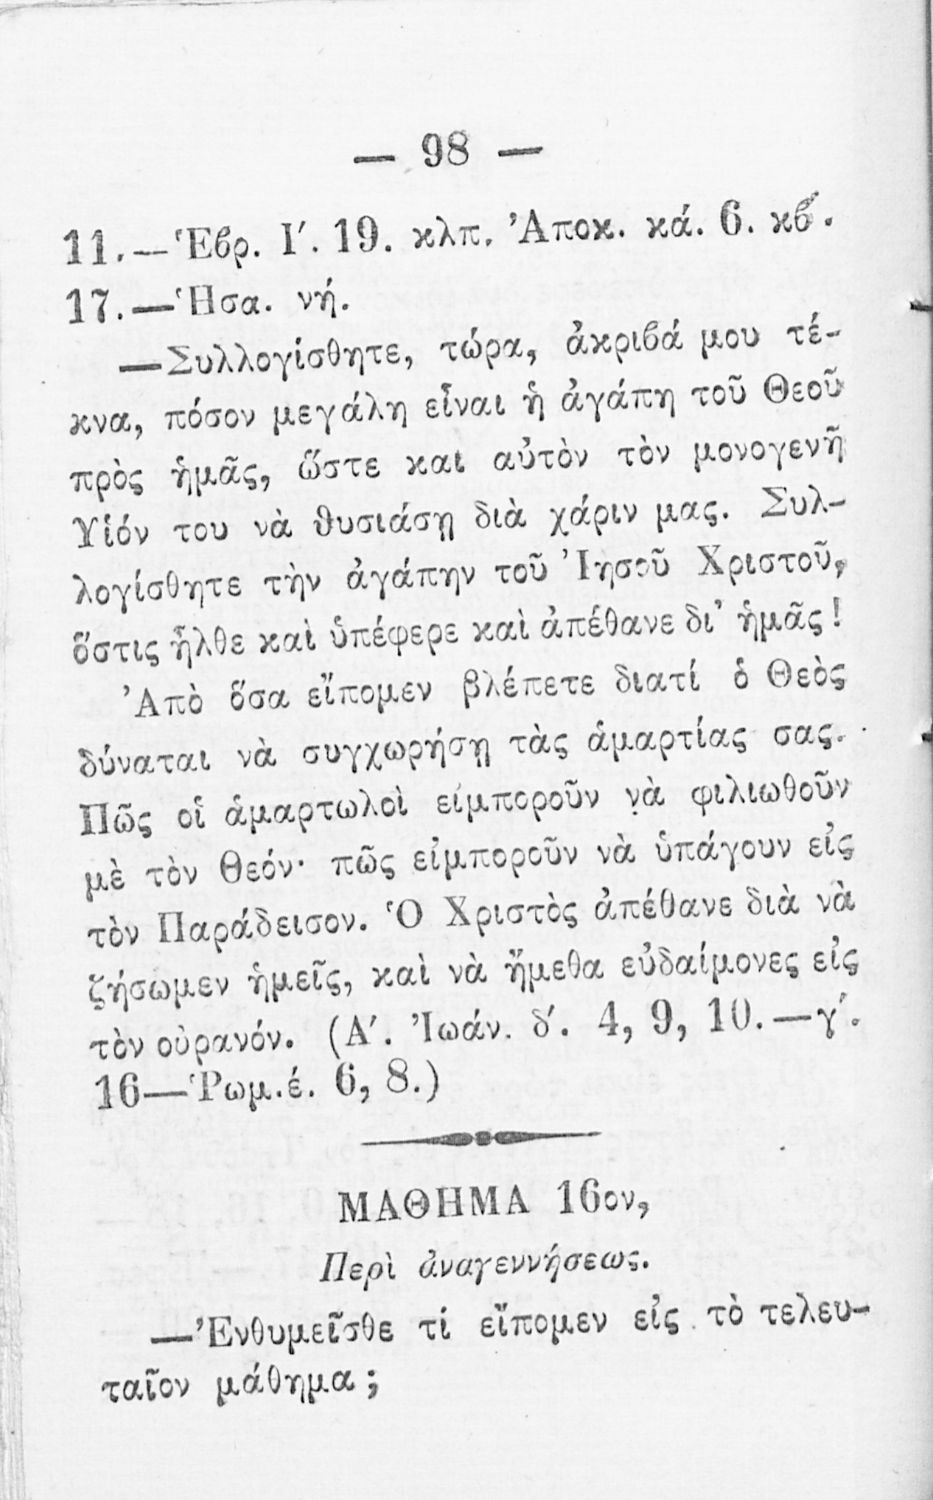 — 98 —
11.—Ἑβρ. Ι΄. 19. κλπ. Ἀποκ. κά. 6. κβ΄.
17.—Ἡσα. νή.
—Συλλογίσθητε, τώρα, ἀκριβά μου τέ-
κνα, πόσον μεγάλη εἶναι ἡ ἀγάπη τοῦ Θεοῦ
πρὸς ἡμᾶς, ὥστε και αὐτὸν τὸν μονογενῆ
Υἱόν του νὰ θυσιάσῃ διὰ χάριν μας. Συλ-
λογίσθητε τὴν ἀγάπην τοῦ Ἰησοῦ Χριστοῦ,
ὅστις ἦλθε καὶ ὑπέφερε καὶ ἀπέθανε δι' ἡμᾶς!
Ἀπὸ ὅσα εἴπομεν βλέπετε διατί ὁ Θεὸς
δύναται νὰ συγχωρήσῃ τὰς ἁμαρτίας σας.
Πῶς οἱ ἁμαρτωλοὶ εἰμποροῦν νὰ φιλιωθοῦν
μὲ τὸν Θεόν· πῶς εἰμποροῦν νὰ ὑπάγουν εἰς
τὸν Παράδεισον. Ὁ Χριστὸς ἀπέθανε διὰ νὰ
ζήσωμεν ἡμεῖς, καὶ νὰ ἤμεθα εὐδαίμονες εἰς
τὸν οὐρανόν. (Α΄. Ἰωάν. δ΄. 4, 9, 10.—γ΄.
16—Ῥωμ.έ. 6, 8.)
ΜΑΘΗΜΑ 16ον,
Περὶ ἀναγεννήσεως.
—Ἐνθυμεῖσθε τί εἴπομεν εἰς τὸ τελευ-
ταῖον μάθημα;